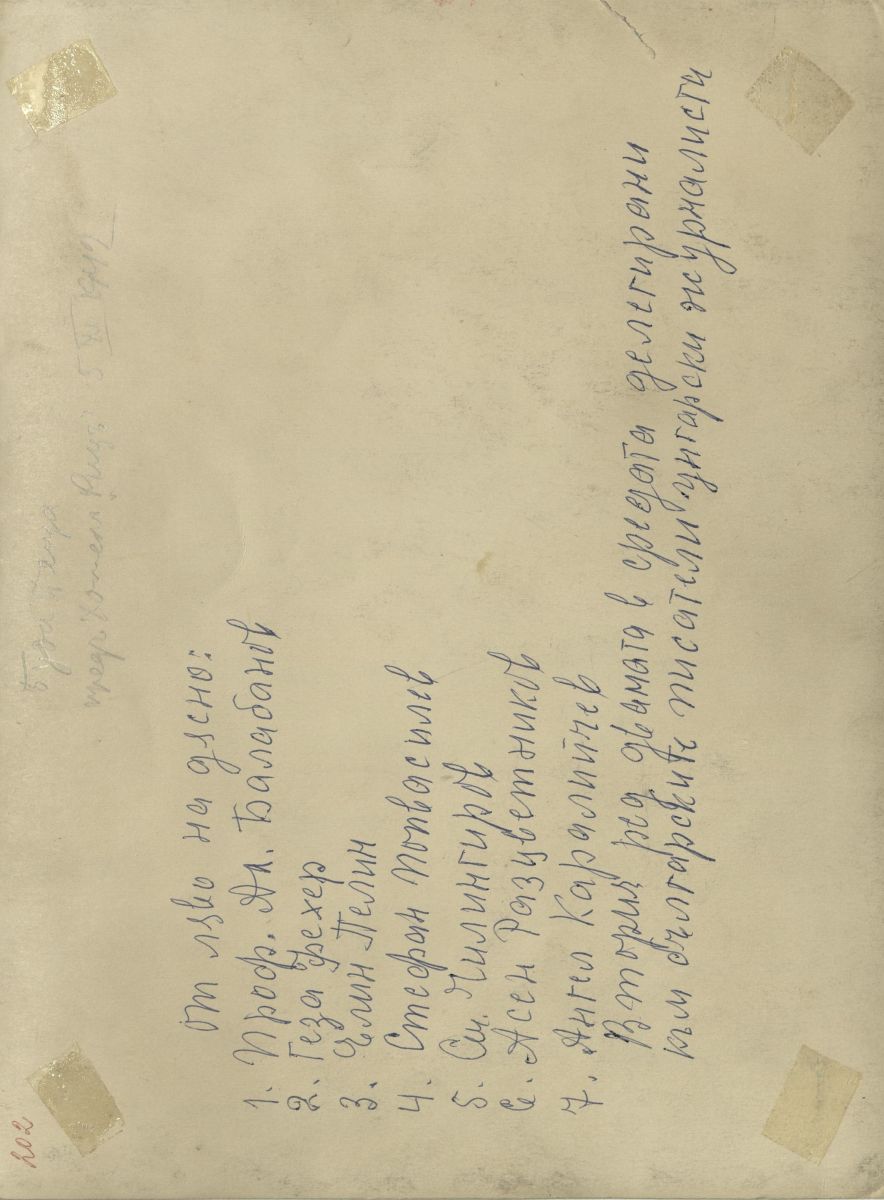 От ляво на дясно:
1. Проф. Ал. Балабанов
2. Геза Фехер
3. Елин Пелин
4. Стефан Попвасилев
5. Ст. Чилингиров
6. Асен Разцветников
7. Ангел Каралийчев
Втория ред двамата в средата делегирани
към българските писатели унгарски журналисти
202